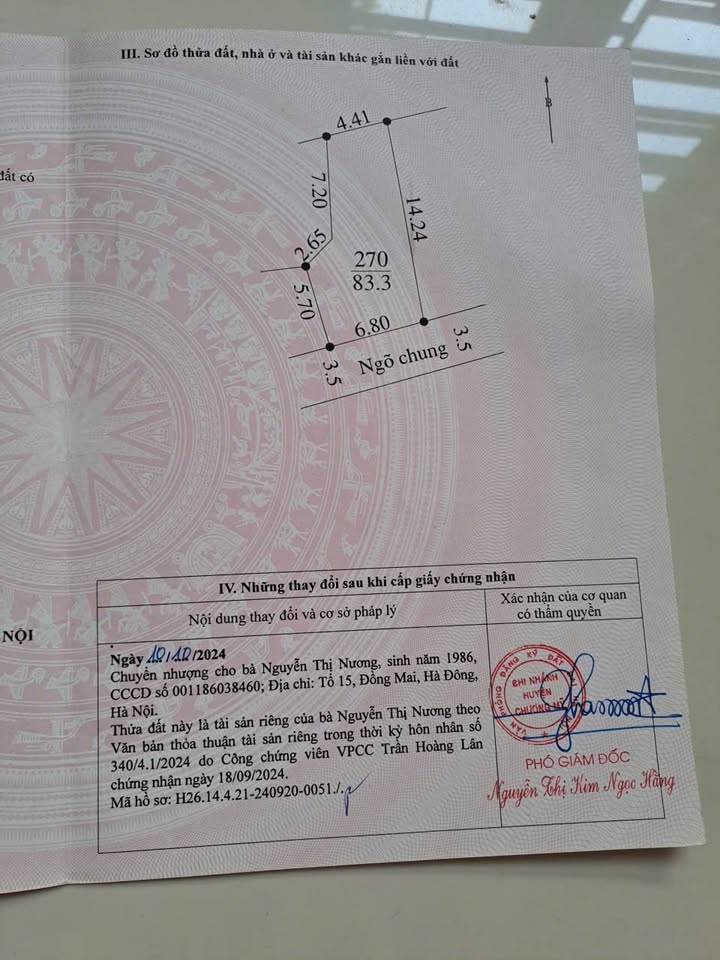 III. Sơ đồ thửa đất, nhà ở và tài sản khác gắn liền với đất
B
đất có
4.41
7.20
14.24
2.65
270
83.3
5.70
6.80
3.5
Ngõ chung
3.5
IV. Những thay đổi sau khi cấp giấy chứng nhận
Nội dung thay đổi và cơ sở pháp lý
Xác nhận của cơ quan
có thẩm quyền
NỘI
Ngày 12/12/2024
Chuyển nhượng cho bà Nguyễn Thị Nương, sinh năm 1986,
CCCD số 001186038460; Địa chỉ: Tổ 15, Đồng Mai, Hà Đông,
Hà Nội.
Thửa đất này là tài sản riêng của bà Nguyễn Thị Nương theo
Văn bản thỏa thuận tài sản riêng trong thời kỳ hôn nhân số
340/4.1/2024 do Công chứng viên VPCC Trần Hoàng Lân
chứng nhận ngày 18/09/2024.
Mã hồ sơ: H26.14.4.21-240920-0051./.
VĂN PHÒNG ĐĂNG KÝ ĐẤT
CHI NHÁNH
HUYỆN
CHƯƠNG MỸ
PHÓ GIÁM ĐỐC
Nguyễn Thị Kim Ngọc Hằng